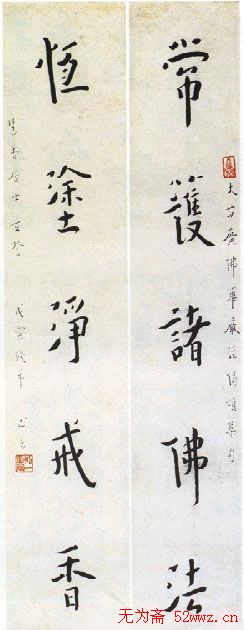 常護諸佛法
大方廣佛華嚴經偈頌集句
恆塗淨戒香
慧香居士
戊寅殘年
无为斋 52wwz.cn